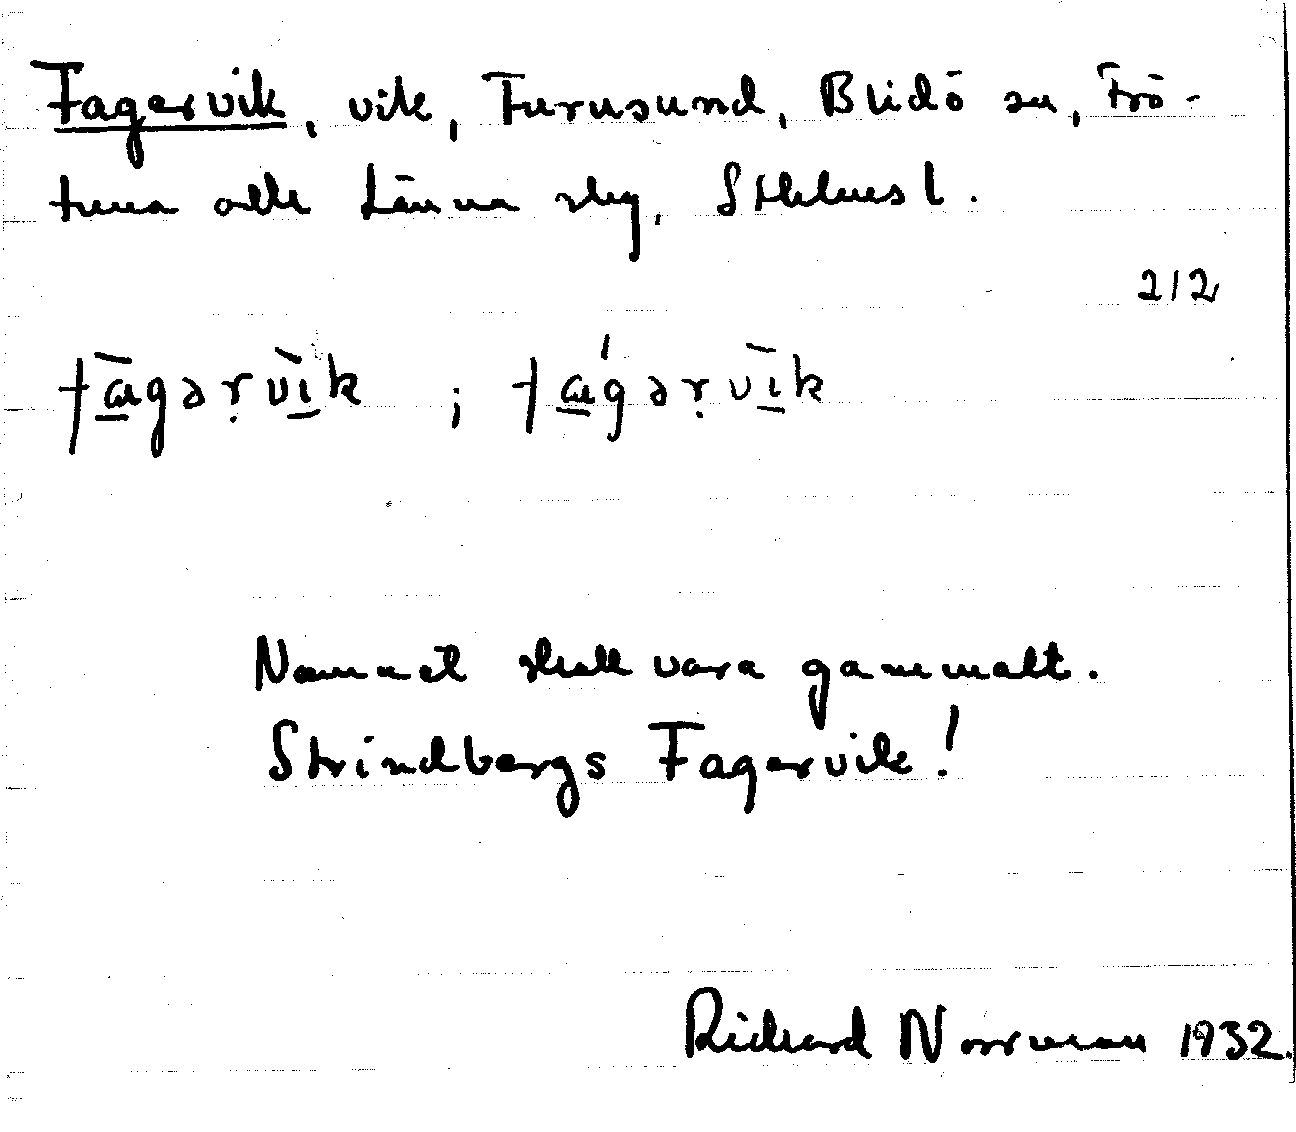 Fagervik, vik, Furusund, Blidö sn, Frö-
tuna olle Länna skg, Sthlms l.
212
fa̠gəṛvi̠k ; fa̠gəṛvi̠k
Namnet skall vara gammalt.
Strindbergs Fagervik!
Richard Norrman 1932.